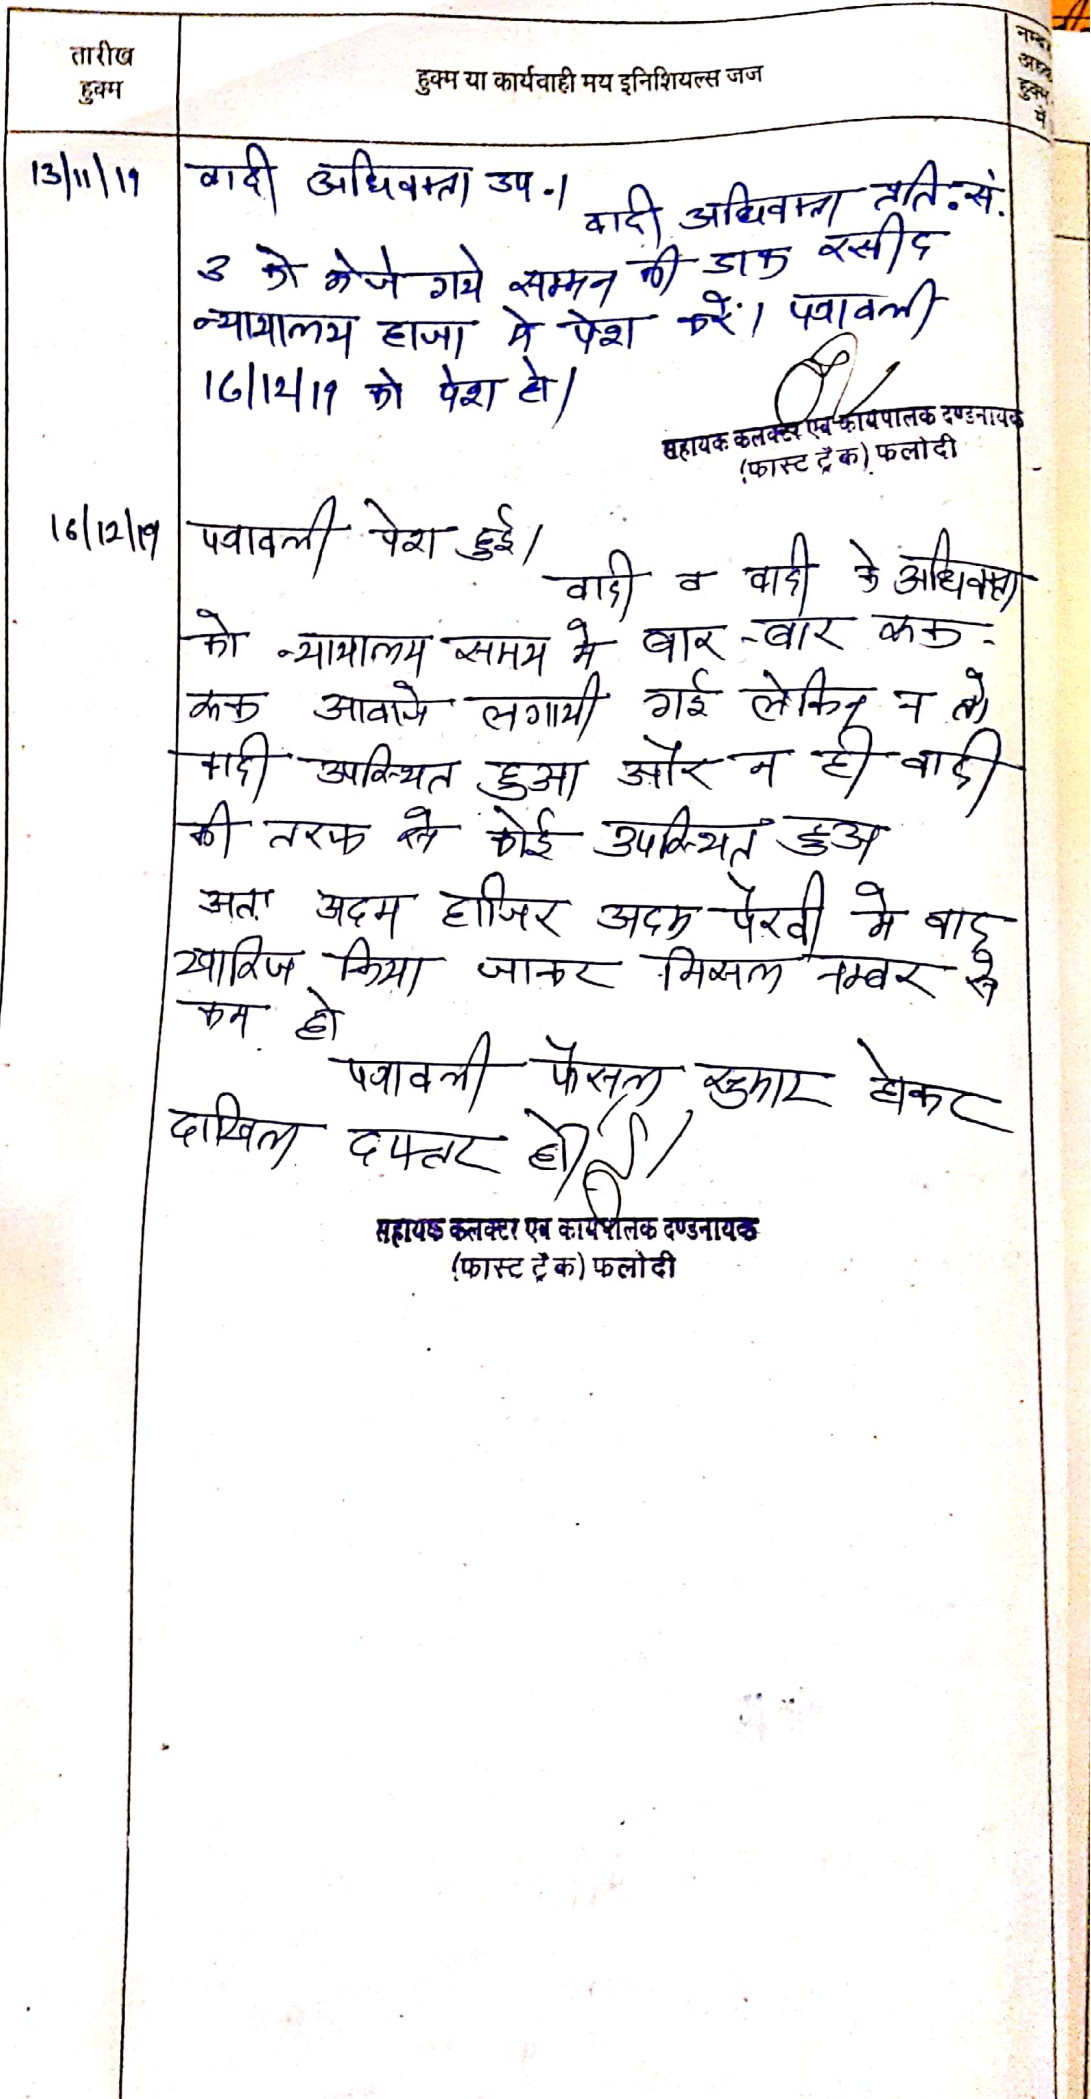 तारीख
हुक्म
हुक्म या कार्यवाही मय इनिशियल्स जज
हुक्म
में
13/11/19 वादी अधिवक्ता उप.।
वादी अधिवक्ता प्रति.सं.
3 को भेजे गये सम्मन की डाक रसीद
न्यायालय हाजा मे पेश करें। पत्रावली
16/12/19 को पेश हो।
सहायक कलक्टर एवं कार्यपालक दण्डनायक
(फास्ट ट्रैक) फलोदी
16/12/19 पत्रावली पेश हुई।
वादी व वादी के अधिवक्ता
को न्यायालय समय मे बार-बार
आवाजे लगायी गई लेकिन न तो
वादी उपस्थित हुआ और न ही वादी
की तरफ से कोई उपस्थित हुआ
अतः अदम हाजिर अदम पैरवी मे वाद
खारिज किया जाकर मिसल नम्बर से
कम हो
पत्रावली फैसल सुमार होकर
दाखिल दफ्तर हो।
सहायक कलक्टर एवं कार्यपालक दण्डनायक
(फास्ट ट्रैक) फलोदी